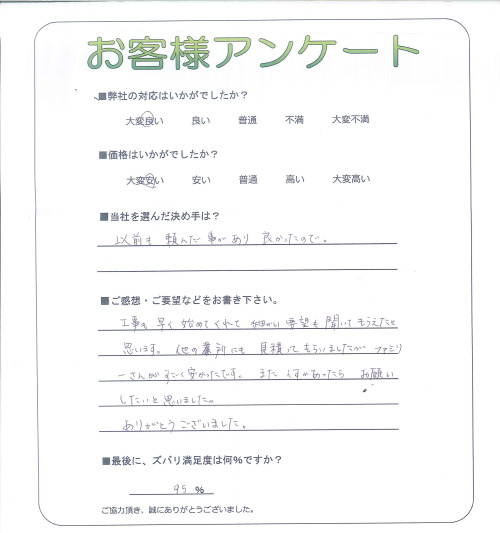 お客様アンケート
■弊社の対応はいかがでしたか？
大変良い 良い 普通 不満 大変不満
■価格はいかがでしたか？
大変安い 安い 普通 高い 大変高い
■当社を選んだ決め手は？
以前も 頼んだ 事があり 良かったので。
■ご感想・ご要望などをお書き下さい。
工事も 早く 始めてくれて 細かい 要望も 聞いて もらえたと
思います。 他の 業所にも 見積って もらいましたが ファミリ
ーさんが すごく 安かったです。 また 何かあったら お願い
したいと 思いました。
ありがとう ございました。
■最後に、ズバリ満足度は何%ですか？
95 %
ご協力頂き、誠にありがとうございました。